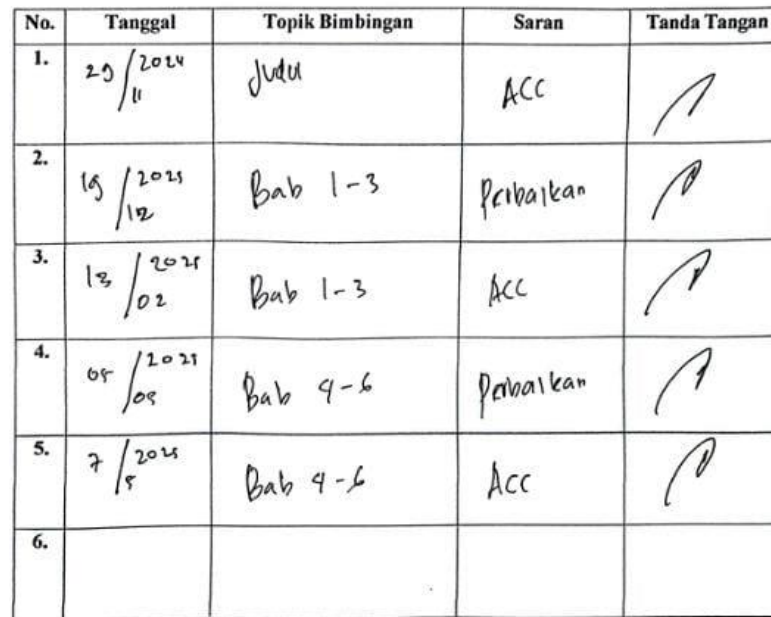 No. Tanggal Topik Bimbingan Saran Tanda Tangan
1. 29/11 2024 Judul ACC
2. 19/12 2025 Bab 1-3 Perbaikan
3. 13/02 2025 Bab 1-3 ACC
4. 2025 Bab 4-6 Perbaikan
5. 7/5 2025 Bab 4-6 ACC
6.